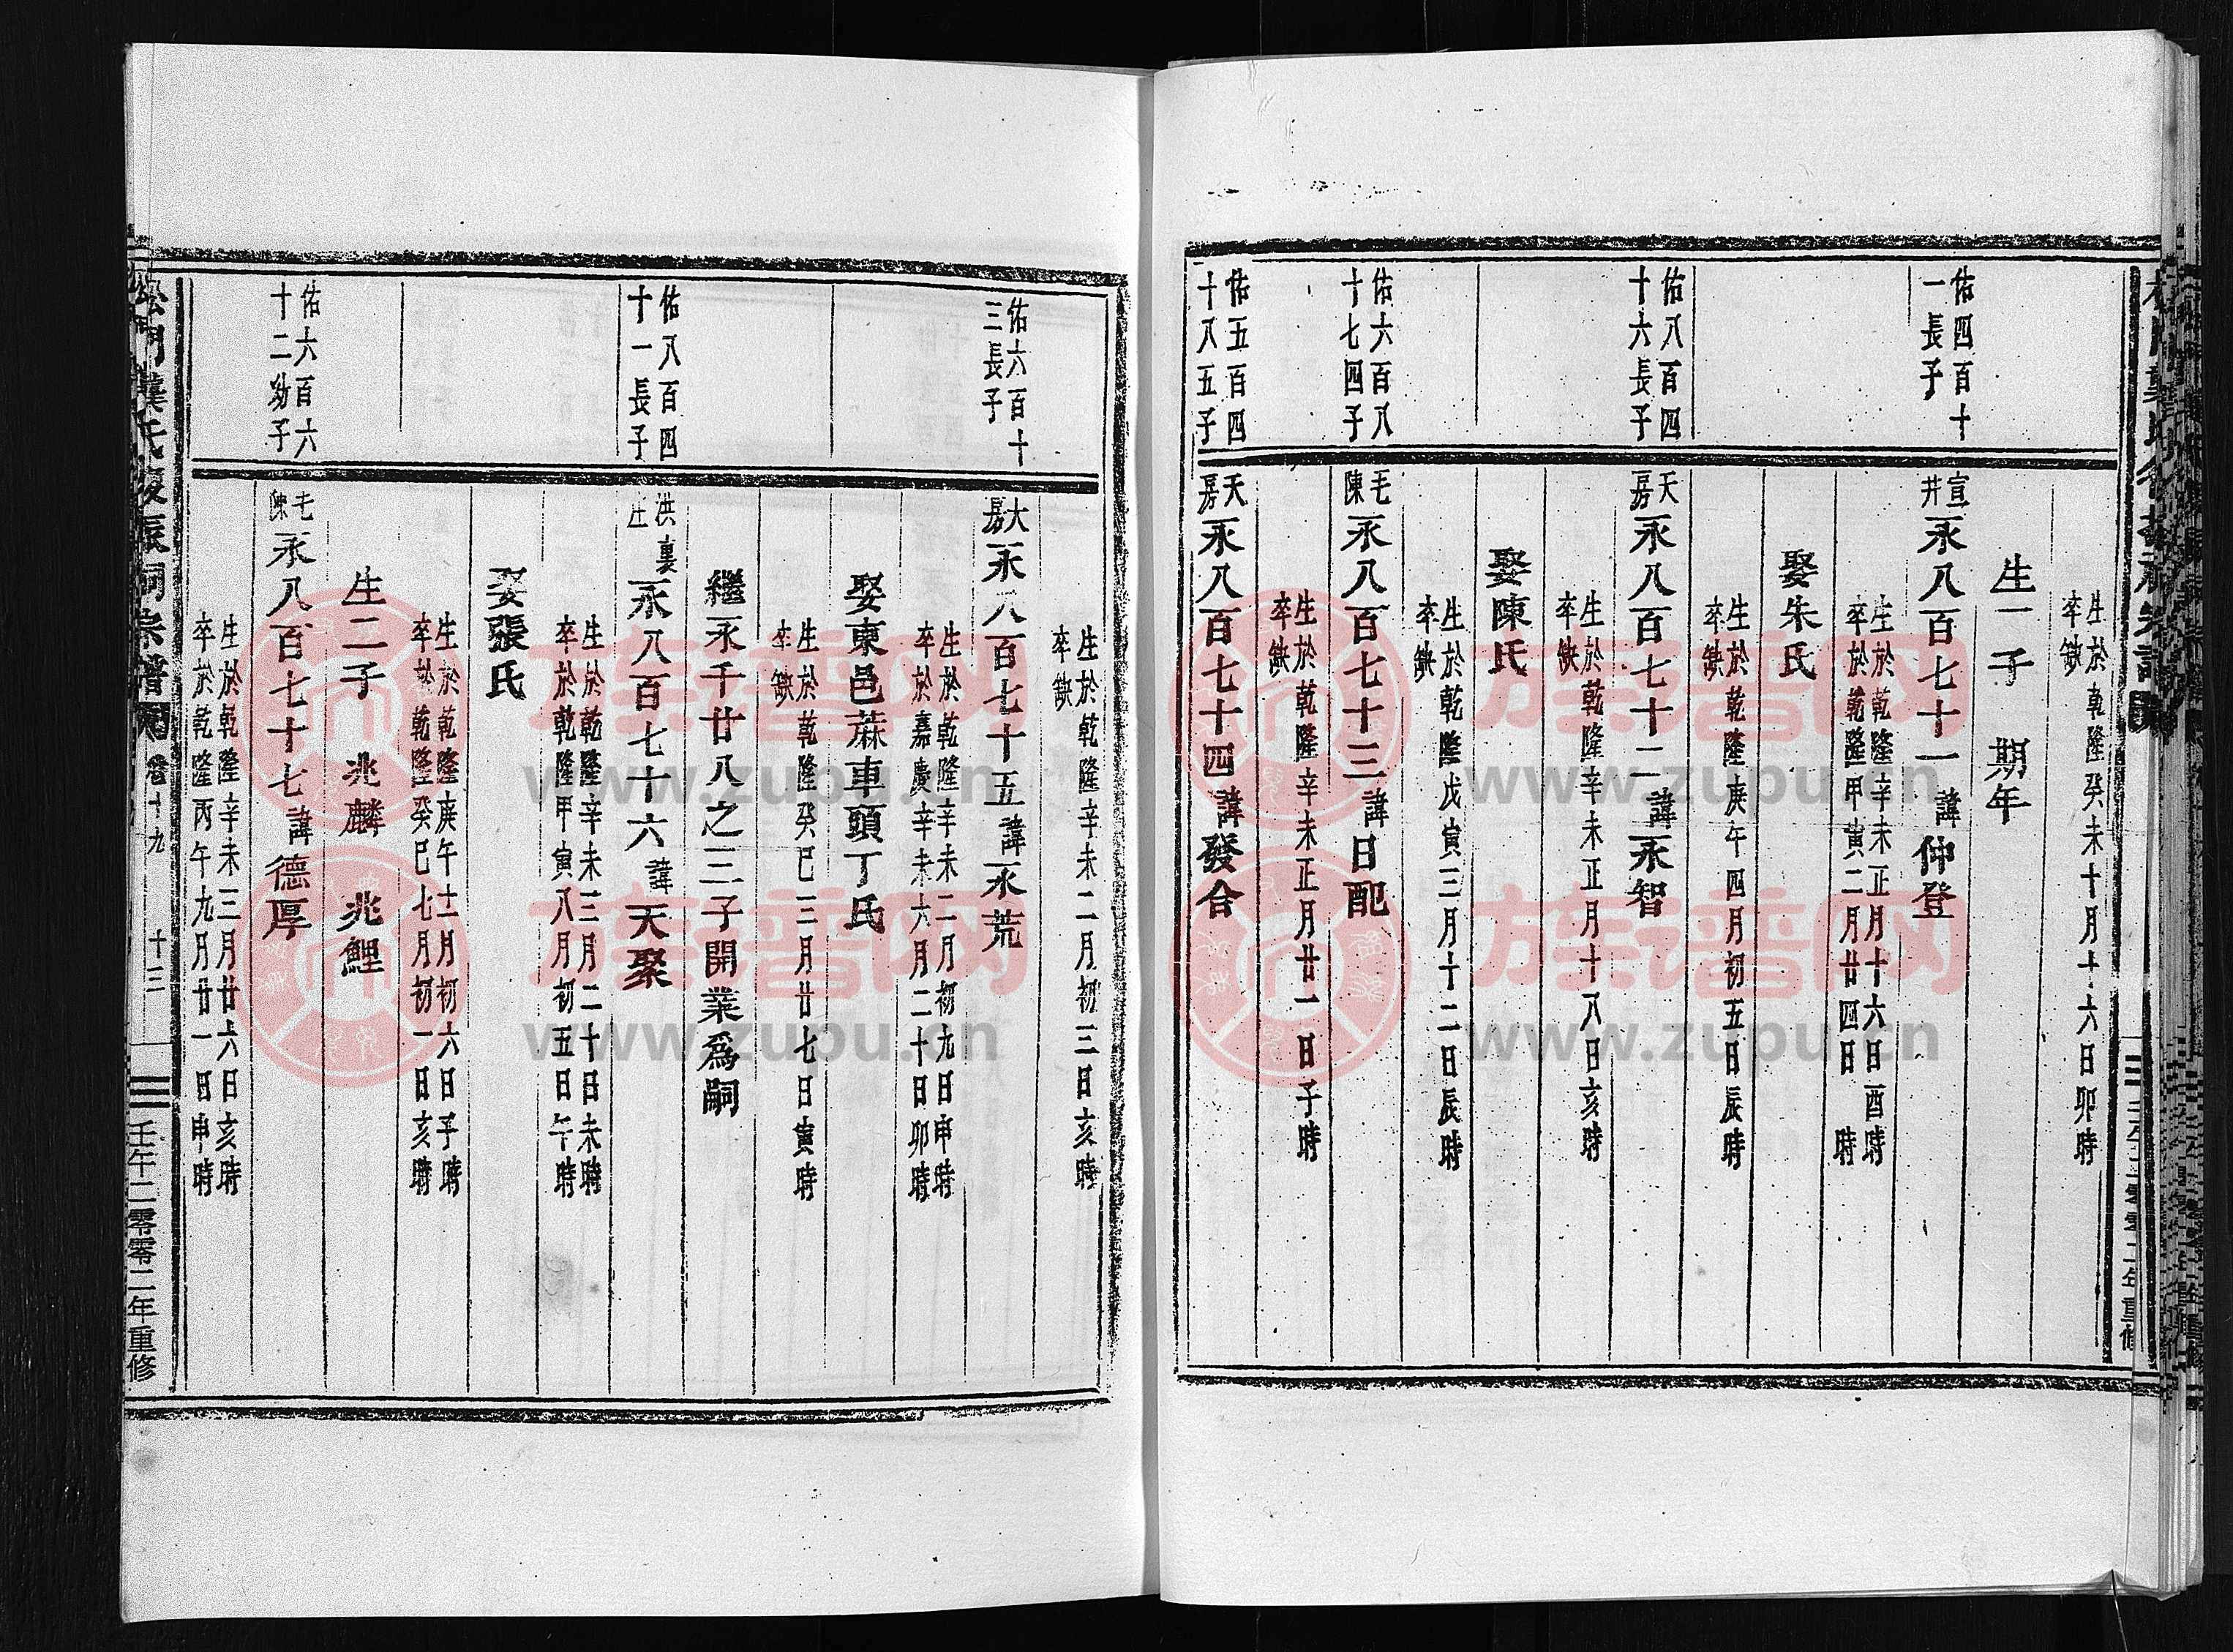 生於乾隆癸未十月十六日卯時
卒缺
生一子 期年
佑四百十
一長子
宣
井
永八百七十一諱仲登
生於乾隆辛未正月十六日酉時
卒於乾隆甲寅二月廿四日 時
娶朱氏
生於乾隆庚午四月初五日辰時
卒缺
佑八百四
十六長子
天
房
永八百七十二諱永智
生於乾隆辛未正月十八日亥時
卒缺
娶陳氏
生於乾隆戊寅三月十二日辰時
卒缺
佑六百八
十七四子
毛
陳
永八百七十三諱日配
生於乾隆辛未正月廿一日子時
卒缺
佑五百四
十八五子
天
房
永八百七十四諱發合
生於乾隆辛未二月初三日亥時
卒缺
佑六百十
三長子
大
房
永八百七十五諱永荒
生於乾隆辛未二月初九日申時
卒於嘉慶辛未六月二十日卯時
娶東邑蔴車頭丁氏
生於乾隆癸巳三月廿七日寅時
卒缺
繼永千廿八之三子開業爲嗣
佑八百四
十一長子
洪裏
庄
永八百七十六諱天聚
生於乾隆辛未三月二十日未時
卒於乾隆甲寅八月初五日午時
娶張氏
生於乾隆庚午十一月初六日子時
卒於乾隆癸巳七月初一日亥時
生二子 兆麟 兆鯉
佑六百六
十二幼子
毛
陳
永八百七十七諱德厚
生於乾隆辛未三月廿六日亥時
卒於乾隆丙午九月廿一日申時
松門龔氏 宗譜 卷十九 十三 壬午二零零二年重修
族譜网
www.zupu.cn
族譜网
www.zupu.cn
族譜网
www.zupu.cn
族譜网
www.zupu.cn